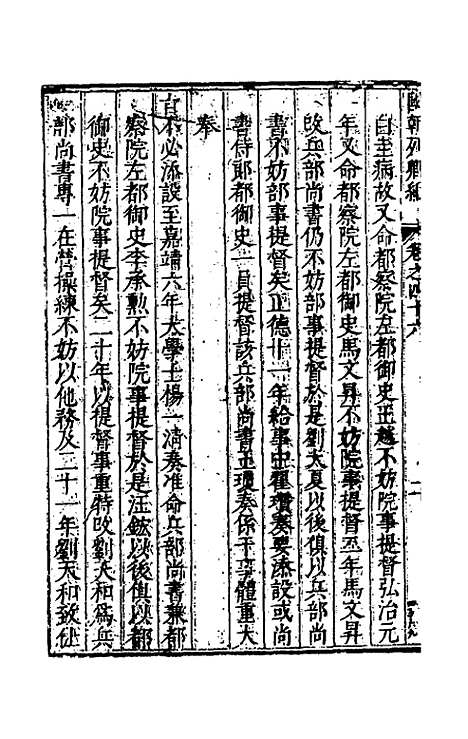 國朝列卿紀 卷之四十六
白圭病故又命都察院左都御史王越不妨院事提督弘治元
年又命都察院左都御史馬文昇不妨院事提督至年馬文昇
改兵部尚書仍不妨部事提督於是劉大夏以後俱以兵部尚
書不妨部事提督矣正德十一年給事中瓚奏要添設或尚
書侍郎都御史一員提督該兵部尚書王瓊奏係干事體重大
奉
旨不必添設至嘉靖六年大學士楊一清奏准命兵部尚書兼都
察院左都御史李承勲不妨院事提督於是汪鋐以後俱以都
御史不妨院事提督矣二十年以提督事重特改劉天和爲兵
部尚書專一在營操練不妨以他務及二十一年劉天和致仕